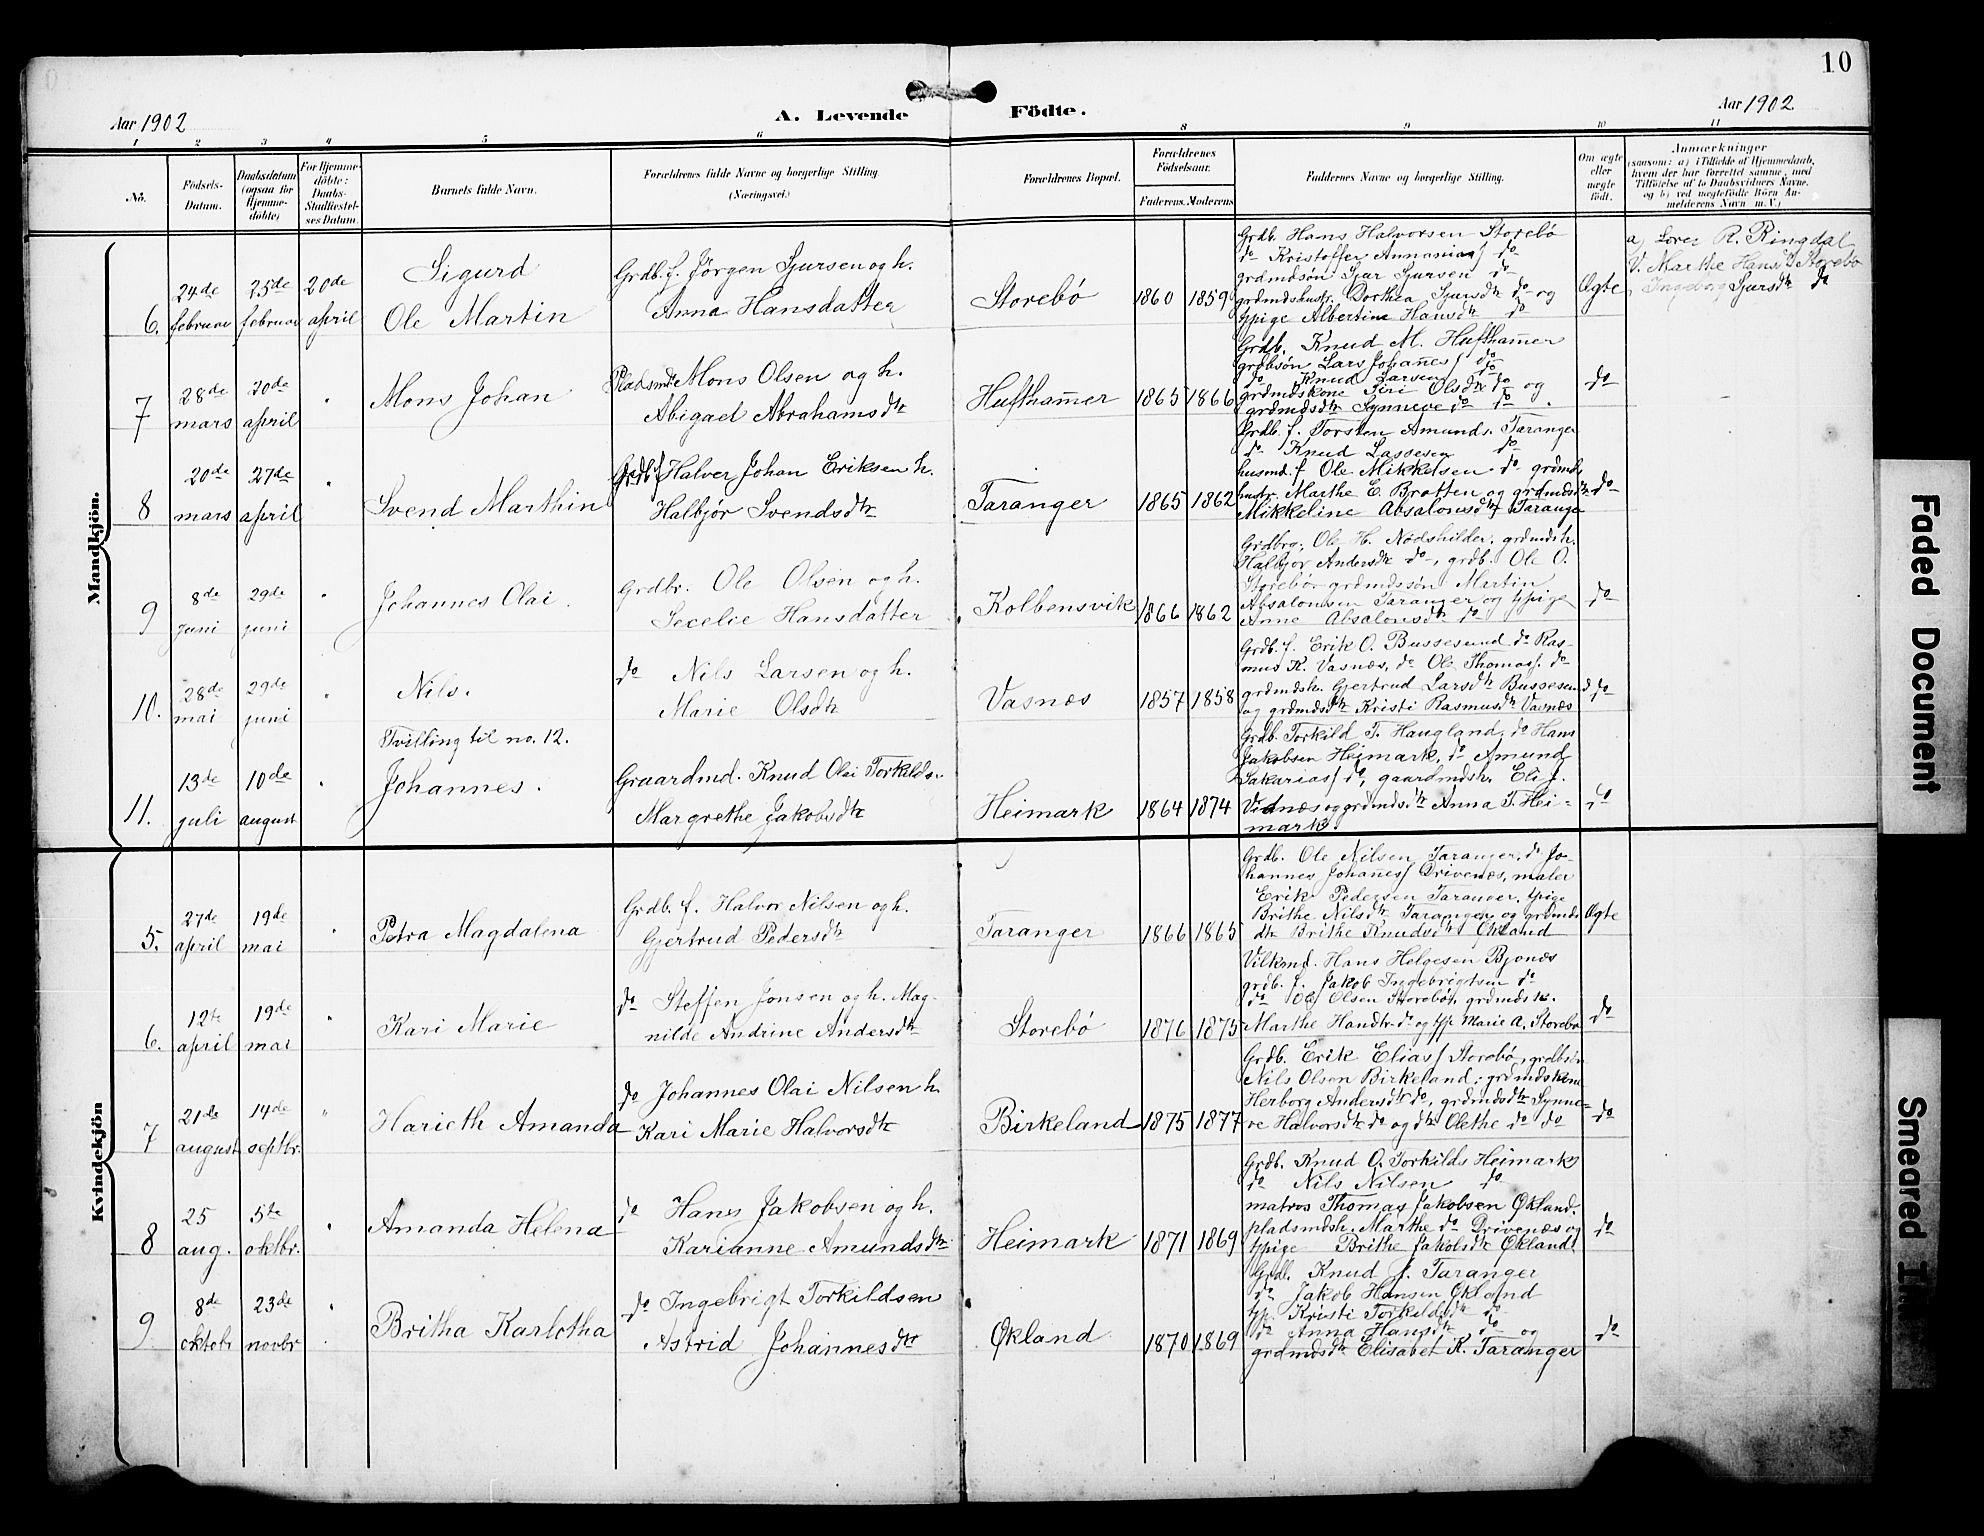 10
Aar 1902
A. Levende Födte.
Aar 1902
1 2 3 4 5 6 8 9 10 11
No.
Födsels-Datum.
Daabsdatum (ogsaa for Hjemmedöbte)
For Hjemmedöbte: Daabs-Stadfæstelses Datum.
Barnets fulde Navn.
Forældrenes fulde Navne og borgerlige Stilling. (Næringsvei.)
Forældrenes Bopæl.
Forældrenes Födselsaar.
Faderens. Moderens.
Faddernes Navne og borgerlige Stilling.
Om ægte eller uægte födt.
Anmærkninger
(saasom: a) i Tilfælde af Hjemmedaab,
hvem der har forrettet samme, med
Tilföielse af to Daabsvidners Navne,
og b) ved uægtefödte Börn Anmelderens Navn m. V.)
Mandkjön.
6. 24de februar 25de februar 20de april
Sigurd
Ole Martin
Grdb. f. Jörgen Sjursen og h.
Anna Hansdatter
Storebö 1860 1859
Grdb. Hans Halvorsen Storebö
do Kristoffer Annanias/ do
grdmdsön Sjur Sjursen do
grdmdshustr. Dorthea Sjursdtr do og
tjpige Albertine Hansdtr do
Ægte
a, Lærer R. Ringdal
V. Marthe Hansd Storebö
Ingeborg Sjursdtr do
7 28de mars 20de april "
Mons Johan
Pladsmd. Mons Olsen og h.
Abigael Abrahamsdtr
Hufthammer 1865 1866
Grdb. Knud M. Hufthammer
grdbsön Lars Johannes/ do
do Knud Larsen do
grdmdskone Siri Olsdtr do og
grdmdsdtr Synneve do do.
do
8 20de mars 27de april "
Svend Marthin
Grdb f Halver Johan Eriksen h.
Halbjör Svendsdtr
Taranger 1865 1862
Grdb. f. Torsten Amunds. Taranger
do Knud Lassesen do
husmd. f Ole Mikkelsen do grdmds
hustr. Marthe E. Bratten og grdmdsdtr
Mikkeline Absalonsdtr Taranger
do
9 8de juni 29de juni "
Johannes Olai.
Grdbr. Ole Olsen og h.
Secelie Hansdatter
Kolbensvik 1866 1862
Grdbrg. Ole H. Nödshilder, grdmdsh.
Halbjör Andersdtr do, grdb. Ole O.
Storebö grdmdssön Martin
Absalonsen Taranger og tjpige
Anne Absalonsdtr do
do
10. 28de mai 29de juni "
Nils.
do Nils Larsen og h.
Marie Olsdtr
Vasnæs 1857 1858
Grdb. f. Erik O. Bussesund do Ras-
mus K. Vasnæs, do Ole Thomas/. do
grdmdsh. Gjertrud Larsdtr Bussesund
og grdmdsdtr Kristi Rasmusdtr Vasnæs
do
Tvilling til no. 12.
11. 13de juli 10de august "
Johannes.
Graardmd. Knud Olai Torkilds.
Margrethe Jakobsdtr
Heimark 1864 1874
Grdb. Torkild T. Haugland, do Hans
Jakobsen Heimark, do Amund
Sakarias/ do, gaardmdsh. Eli J.
Vidnæs og grdmdsdtr Anna T. Hei-
mark.
do
Kvindekjön
5. 27de april 19de mai "
Petra Magdalena
Grdb. f. Halvor Nilsen og h.
Gjertrud Pedersdtr
Taranger 1866 1865
Grdb. Ole Nilsen Taranger, do Jo-
hannes Johannes/ Drivenæs, maler
Erik Pedersen Taranger, tpige
Brithe Nilsdtr Taranger og grdmds
dtr Brithe Knudsdtr Økland
Ægte
6. 12te april 19de mai "
Kari Marie
do Steffen Jonsen og h. Mag-
nilde Andrine Andersdtr
Storebö 1876 1875
Vilkmd. Hans Helgesen Bjonæs
grdb. f. Jakob Ingebrigtsen do
do Ole Olsen Storebö, grdmdsk.
Marthe Hansdtr do og tjp Marie A. Storebø
do
7 21de august 14de septbr. "
Harieth Amanda
do Johannes Olai Nilsen h.
Kari Marie Halvorsdtr
Birkeland 1875 1877
Grdb. Erik Elias/ Storebø, grdbsön
Nils Olsen Birkeland; grdmdskone
Herborg Andersdtr do, grdmdsdtr Synne-
ve Halvorsdtr do og dtr Olethe do do
do
8 25 aug. 5te oktbr. "
Amanda Helena
do Hans Jakobsen og h.
Karianne Amundsdtr
Heimark 1871 1869
Grdb. Knud O. Torkilds Heimark
do Nils Nilsen do
matros Thomas Jakobsen Økland.
pladsmdsh. Marthe do Drivenæs og
tjpige Brithe Jakobsdtr Økland.
do
9. 8de oktobr 23de novbr "
Britha Karlotha
do Ingebrigt Torkildsen
Astrid Johannesdtr
Økland 1870 1869
Grdb. Knud J. Taranger
do Jakob Hansen Økland
tp. Kristi Torkildsdtr do
do Anna Hansdtr do og
grdmdsdtr Elisabet K. Taranger
do
Faded Document
Smeared